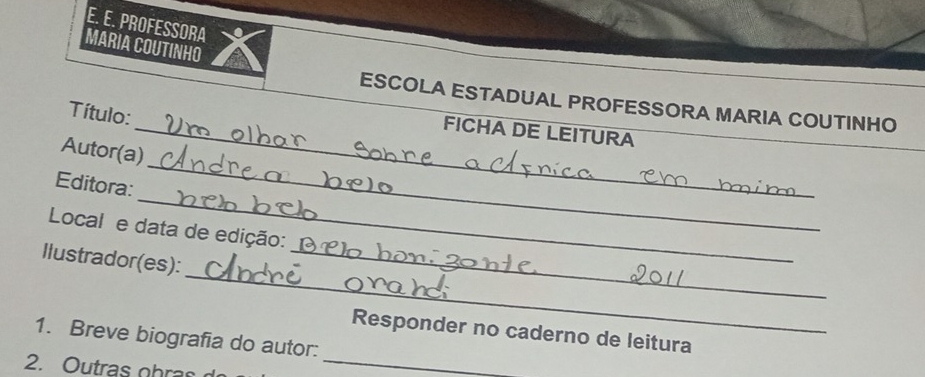 E. E. PROFESSORA
MARIA COUTINHO
ESCOLA ESTADUAL PROFESSORA MARIA COUTINHO
FICHA DE LEITURA
Título: Um olhar sobre a clínica em mim
Autor(a) Andrea belo
Editora: belo belo
Local e data de edição: Belo honizonte 2011
Ilustrador(es): André
Responder no caderno de leitura
1. Breve biografia do autor:
2. Outras obras